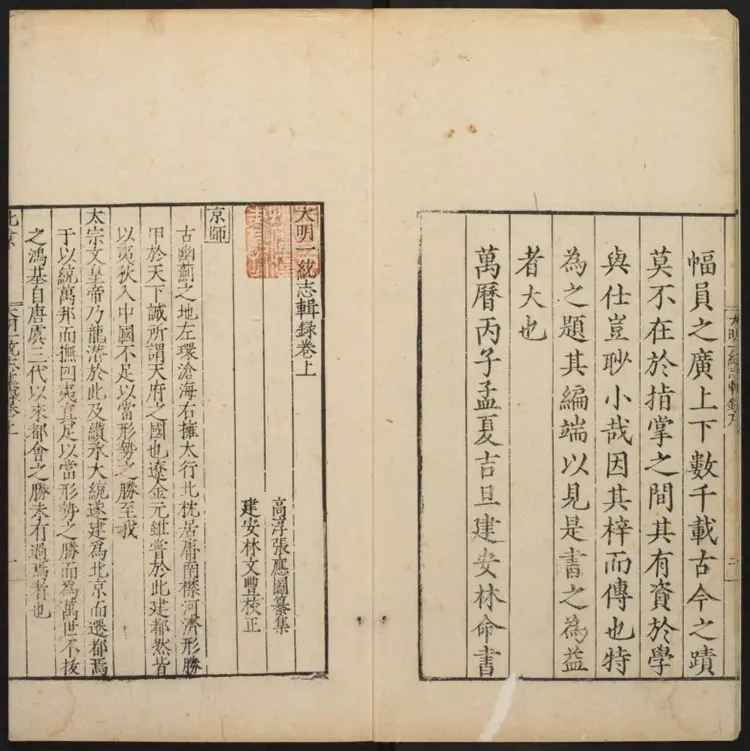 幅員之廣上下數千載古今之蹟
莫不在於指掌之間其有資於學
與仕豈眇小哉因其梓而傳也特
為之題其編端以見是書之為益
者大也
萬曆丙子孟夏吉旦建安林命書
大明一統志輯録卷上
高淳張應圖纂集
建安林文豐校正
京師
古幽薊之地左環滄海右擁太行北枕居庸南襟河濟形勝
甲於天下誠所謂天府之國也遼金元雖嘗於此建都然皆
以夷狄入中國不足以當形勢之勝至我
太宗文皇帝乃龍潛於此及纘承大統遂建為北京而遷都焉
于以統萬邦而撫四夷真足以當形勢之勝而為萬世不拔
之鴻基自唐虞三代以來都會之勝未有過焉者也